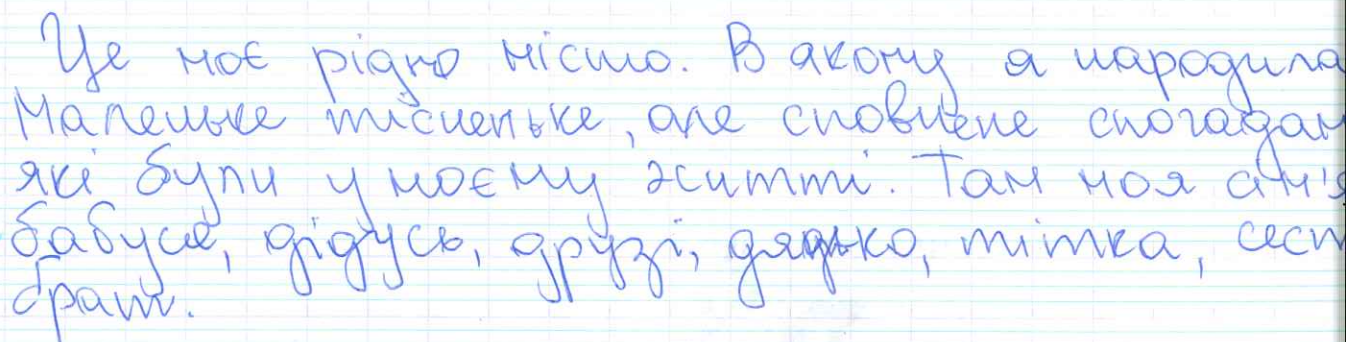 Це моє рідно місто. В якому я народила
Маленьке тісненьке, але сповнене спогадам
які були у моєму житті. Там моя сім'я
бабуся, дідусь, друзі, дядько, тітка, сест
брат.